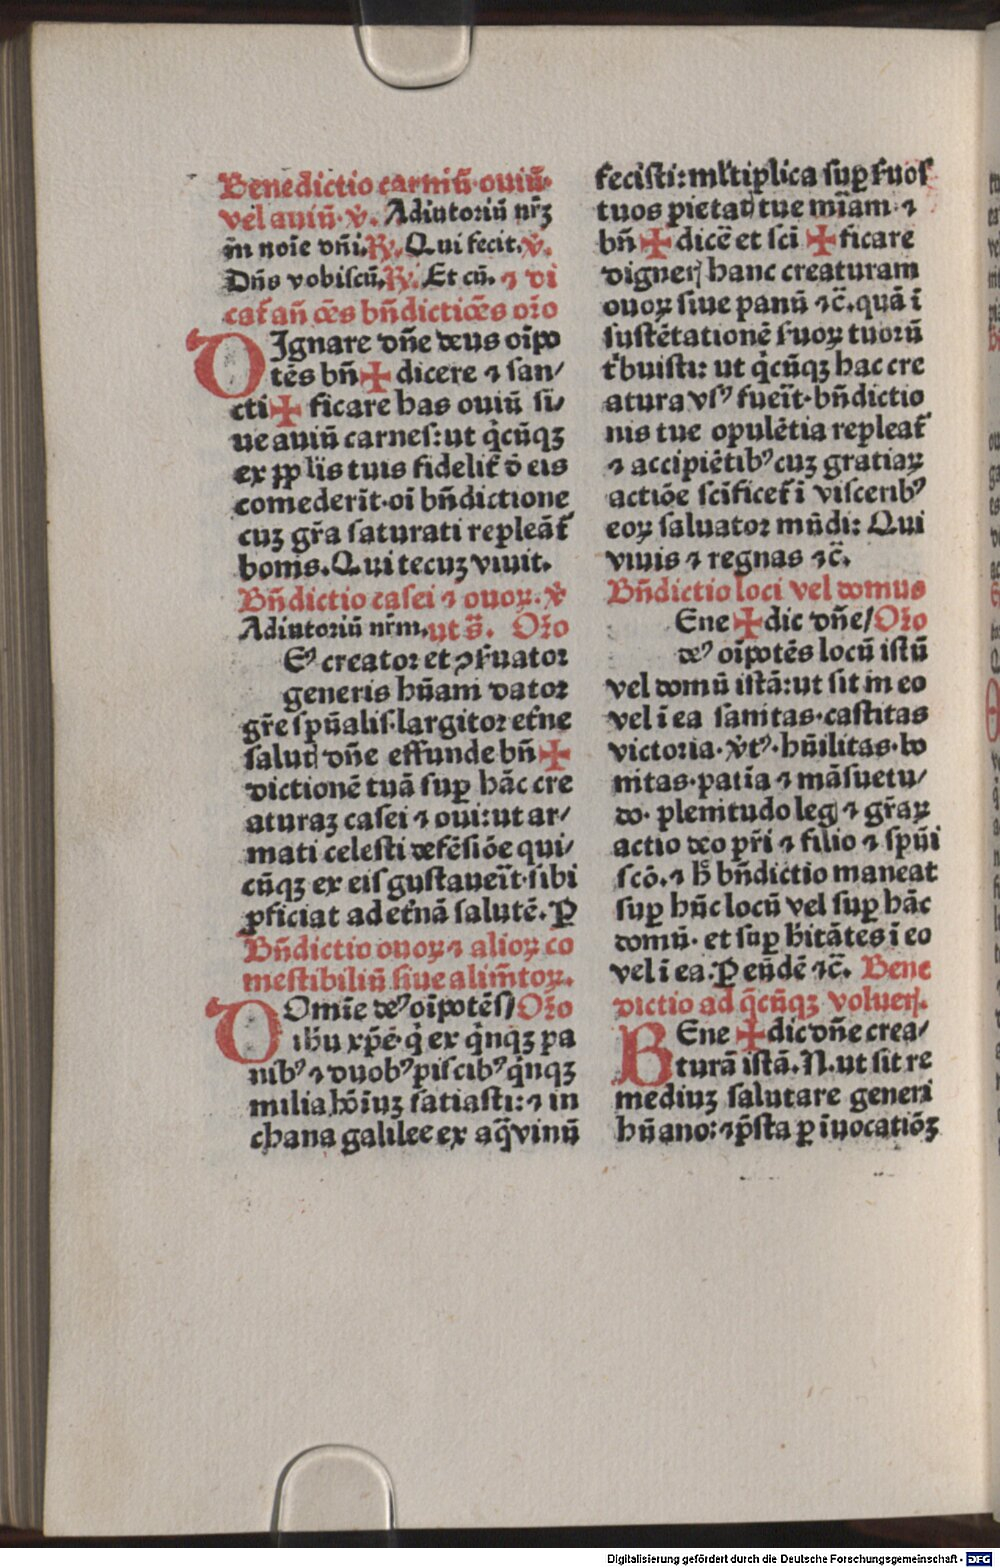 Benedictio carniū·ouiū·
vel auiū·v̇. Adiutoriū nr̄ꝫ
in̄ noīe dn̄i.℟. Qui fecit.v̇.
Dn̄s vobiscū.℟. Et cū. ⁊ di
cat̄ añ oēs bn̄dictiōes or̄o
DIgnare dn̄e deus oīpo
tēs bn̄✠dicere ⁊ san/
cti✠ficare has ouiū si/
ue auiū carnes:ut q̇cūqꝫ
ex pp̄lis tuis fidelit̄ d̄ eis
comederīt·oī bn̄dictione
cuꝫ gr̄a saturati repleāt̄
bonis. Qui tecuꝫ viuit.
Bn̄dictio casei ⁊ ouoꝝ. v̇
Adiutoriū nr̄m. ut s̄. Or̄o
Eꝰ creator et ꝯẜuator
generis hūani dator
gr̄e spūalis·largitor et̄ne
salutꝭ dn̄e effunde bn̄✠
dictionē tuā suꝑ hāc cre
aturaꝫ casei ⁊ oui:ut ar/
mati celesti defēsiōe qui/
cūqꝫ ex eis gustaueīt·sibi
ꝓficiat ad et̄nā salutē. P̱
Bn̄dictio ouoꝝ ⁊ alioꝝ co
mestibiliū siue alim̄toꝝ.
DOmīe deꝰ oīpotēs/ Or̄o
ihu xp̄e·q̇ ex q̇nqꝫ pa
nibꝰ ⁊ duobꝰ piscibꝰ q̇nqꝫ
milia hōīuꝫ satiasti:⁊ in
chana galilee ex aq̄ vinū
fecisti:ml̄tiplica suꝑ ẜuos
tuos pietatꝭ tue mīam·⁊
bn̄✠dicē et sc̄i✠ficare
dignerꝭ hanc creaturam
ouoꝝ siue panū ⁊c̄. quā ī
sustētationē ẜuoꝝ tuorū
t̄buisti: ut q̇cūqꝫ hac cre
atura vsꝰ fueīt·bn̄dictio
nis tue opulētia repleat̄
⁊ accipiētibꝰ cuꝫ gratiaꝝ
actiōe sc̄ificet̄ ī visceribꝰ
eoꝝ saluator mūdi: Qui
viuis ⁊ regnas ⁊c̄.
Bn̄dictio loci vel domus
Ene✠dic dn̄e/ Or̄o
deꝰ oīpotēs locū istū
vel domū istā:ut sit in eo
vel ī ea sanitas·castitas
victoria·v̇tꝰ·hūilitas·bo
nitas·patīa ⁊ māsuetu/
do· plenitudo legꝭ ⁊ gr̄aꝝ
actio deo pr̄i ⁊ filio ⁊ spūi
scō.⁊ h̄ bn̄dictio maneat
suꝑ hūc locū vel suꝑ hāc
domū·et suꝑ h̄itātes ī eo
vel ī ea. P̱ eūdē ⁊c̄. Bene
dictio ad q̄cūqꝫ volueꝭ.
BEne✠dic dn̄e crea/
turā istā. N. ut sit re
mediuꝫ salutare generi
hūano:⁊ p̄sta ꝑ īuocatiōꝫ
Digitalisierung gefördert durch die Deutsche Forschungsgemeinschaft - DFG